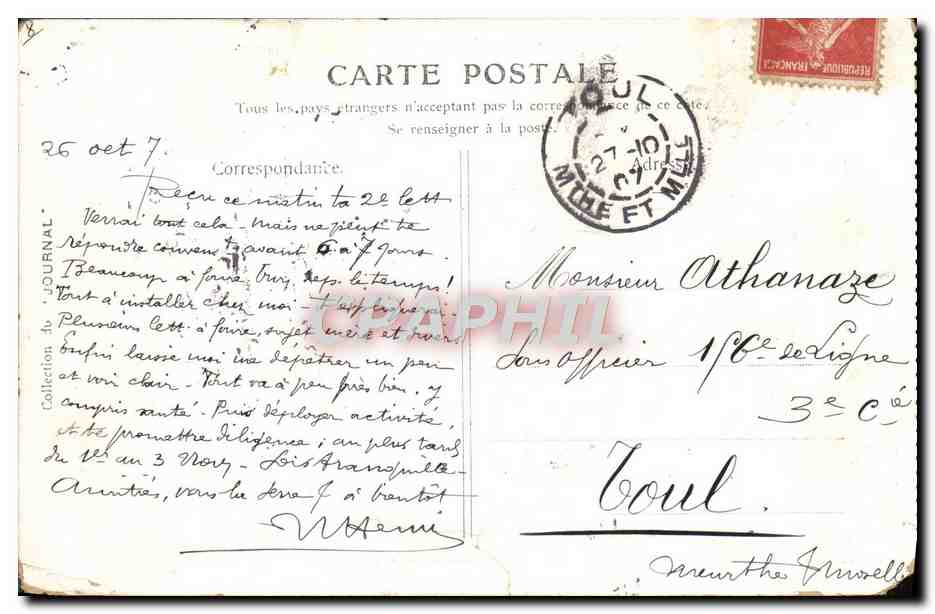 8
REPUBLIQUE FRANÇAISE
CARTE POSTALE
Tous les pays étrangers n'acceptant pas la correspondance de ce côté.
Se renseigner à la poste.
TOUL
27-10
07
MTHE ET MLLE
26 oct 7.
Correspondance.
Adresse
Reçu ce matin ta 2e lett
Verrai tout cela - mais ne peut te
répondre convent avant 6 à 7 jours.
Beaucoup à faire le temps!
Tout à installer chez moi - t'expliquerai.
Plusieurs lett. à faire, sujet et divers
Enfin laisse moi me dépêtrer un peu
et voir clair - Tout va à peu près bien, y
compris santé - Puis déployer activité
et te promettre diligence; au plus tard
du 1er au 3 Nov - Sois tranquille -
Amitiés, à bientôt
Collection du "JOURNAL"
CPAPHIL
Monsieur Athanaze
Sous officier 156e de Ligne
3e Cie
Toul.
Meurthe Moselle